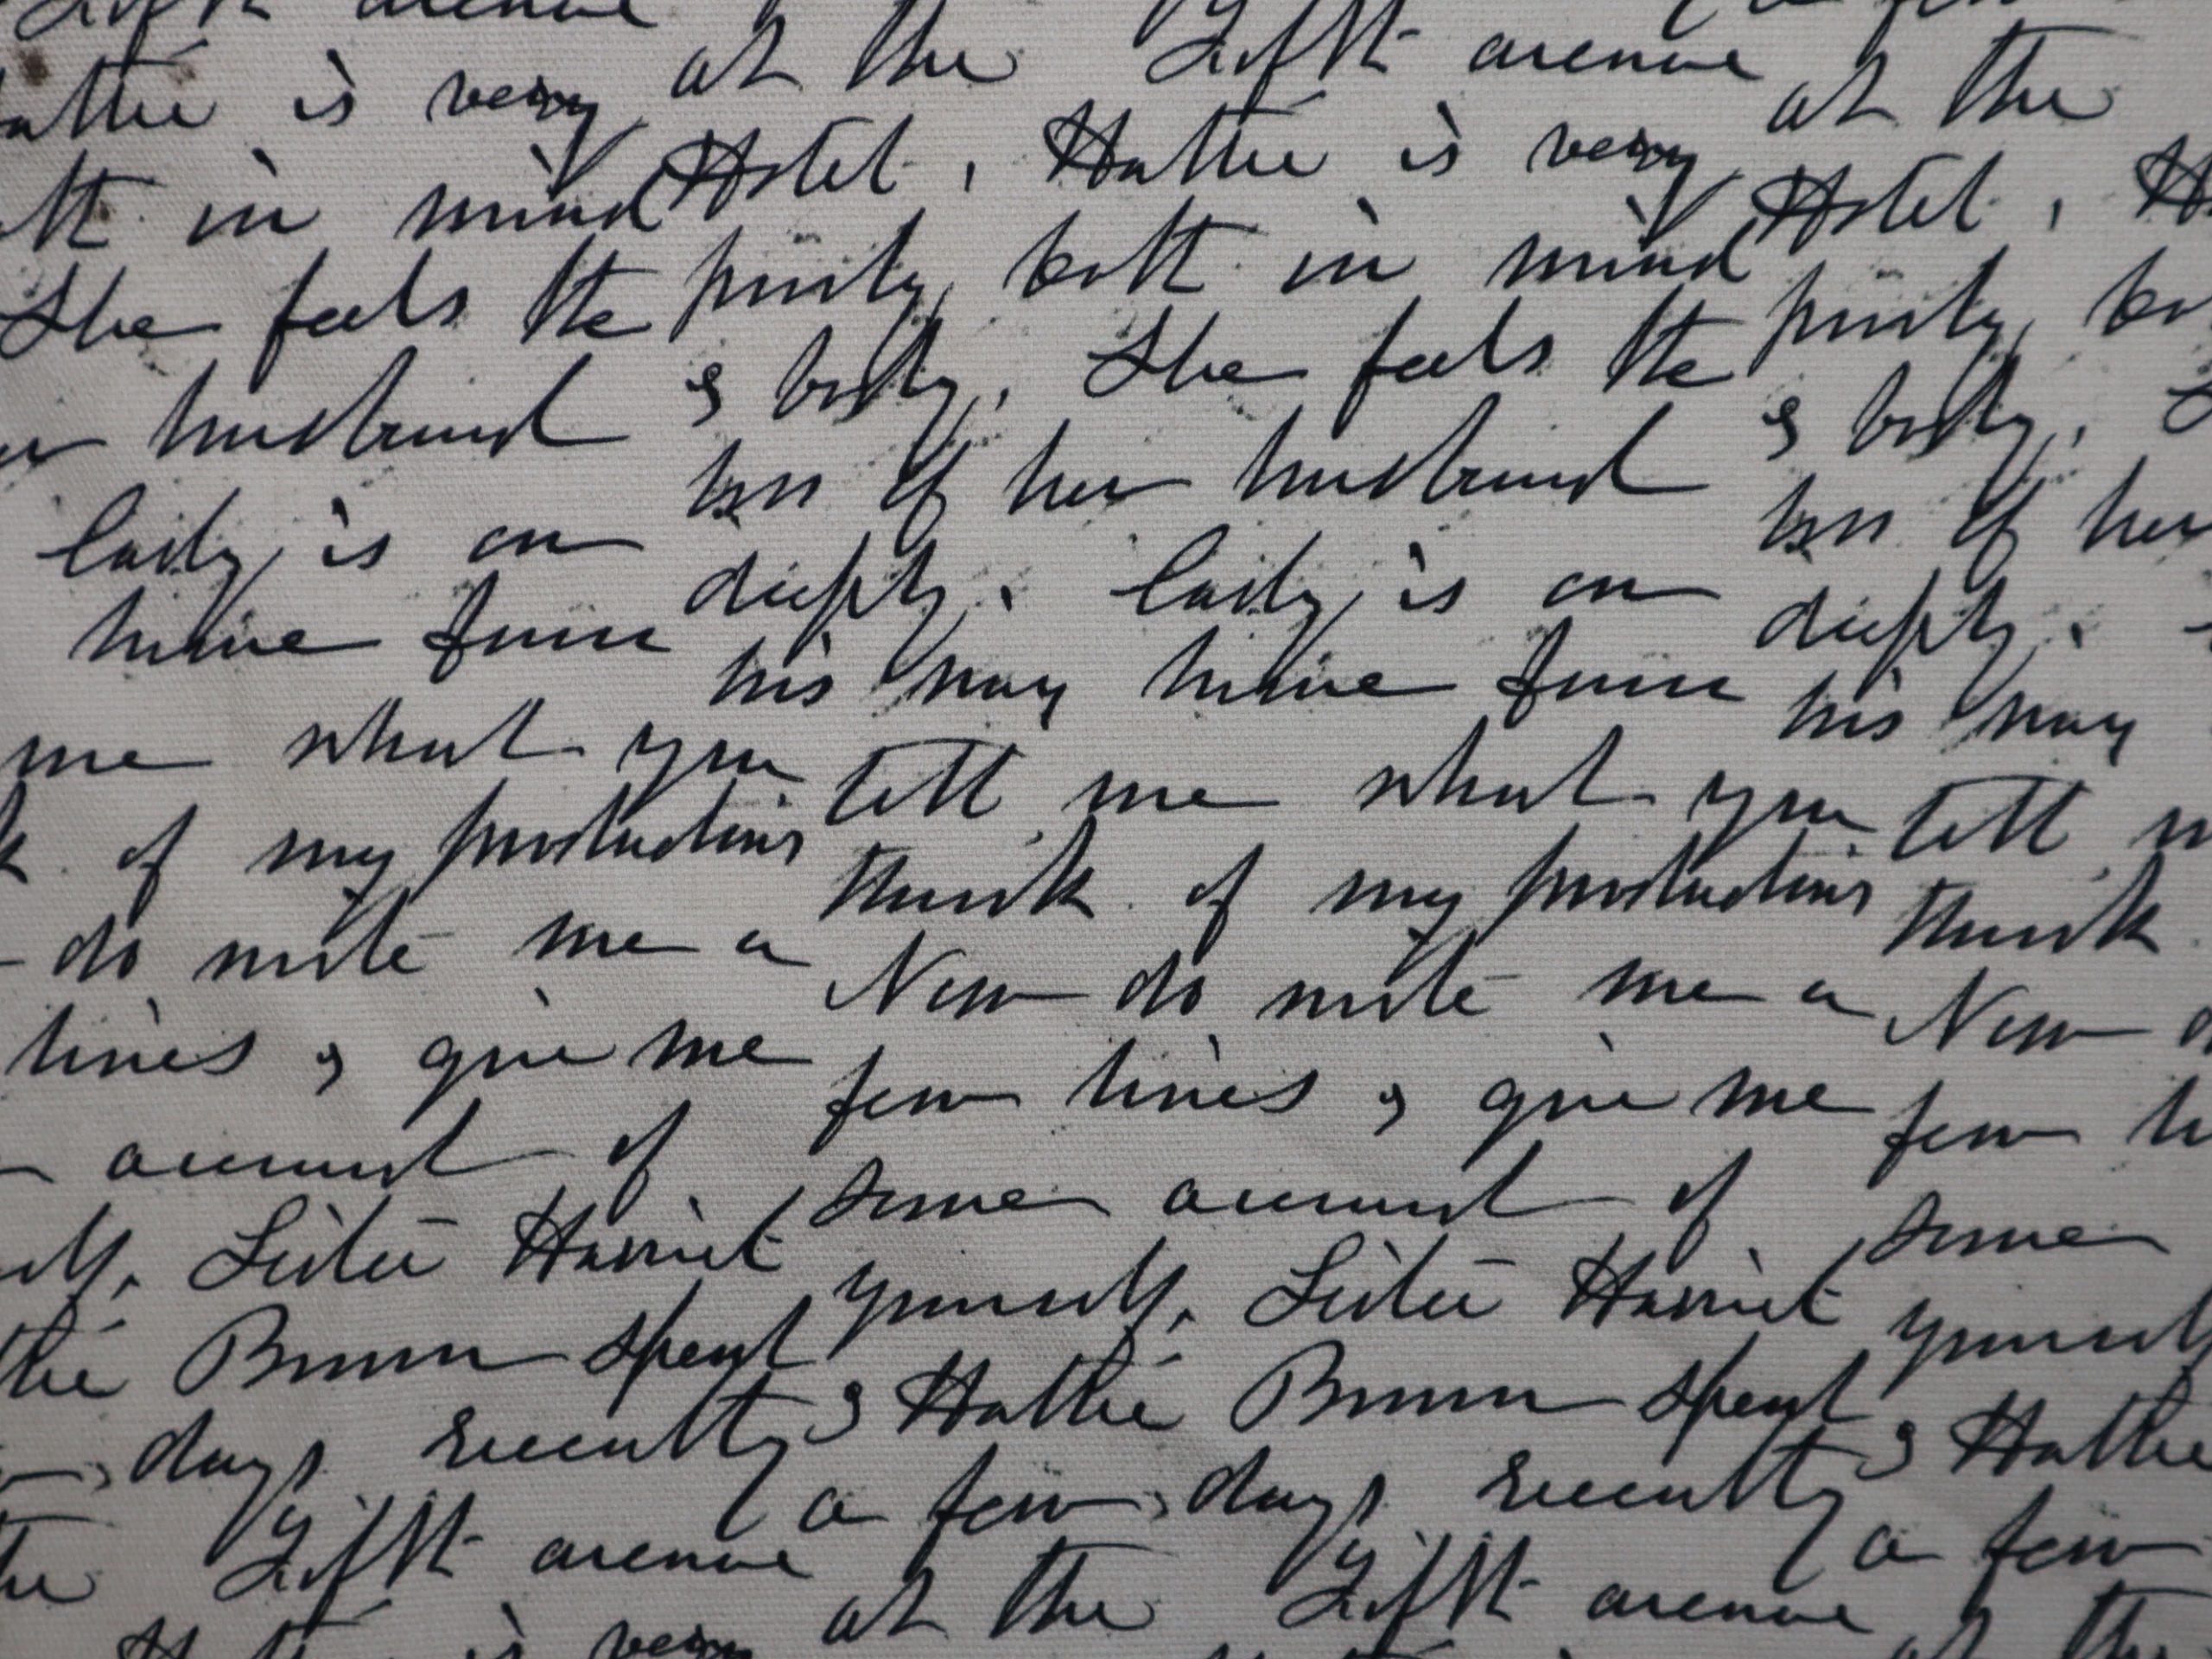 Fifth avenue
at the Fifth avenue at the
is very Hotel, Hattie is very Hotel,
in mind poorly, both in mind poorly,
She feels the & body. She feels the & body.
husband loss of her husband loss of her
lady is on deeply. lady is on deeply.
home from his way home from his way
me what you tell me what you tell
of my productions think of my productions think
do write me a Now do write me a Now
lines & give me few lines & give me few
account of some account of some
Sister Harriet yourself. Sister Harriet
Brown spent & Hattie Brown spent & Hattie
days recently a few days recently a few
Fifth avenue at the Fifth avenue
is very